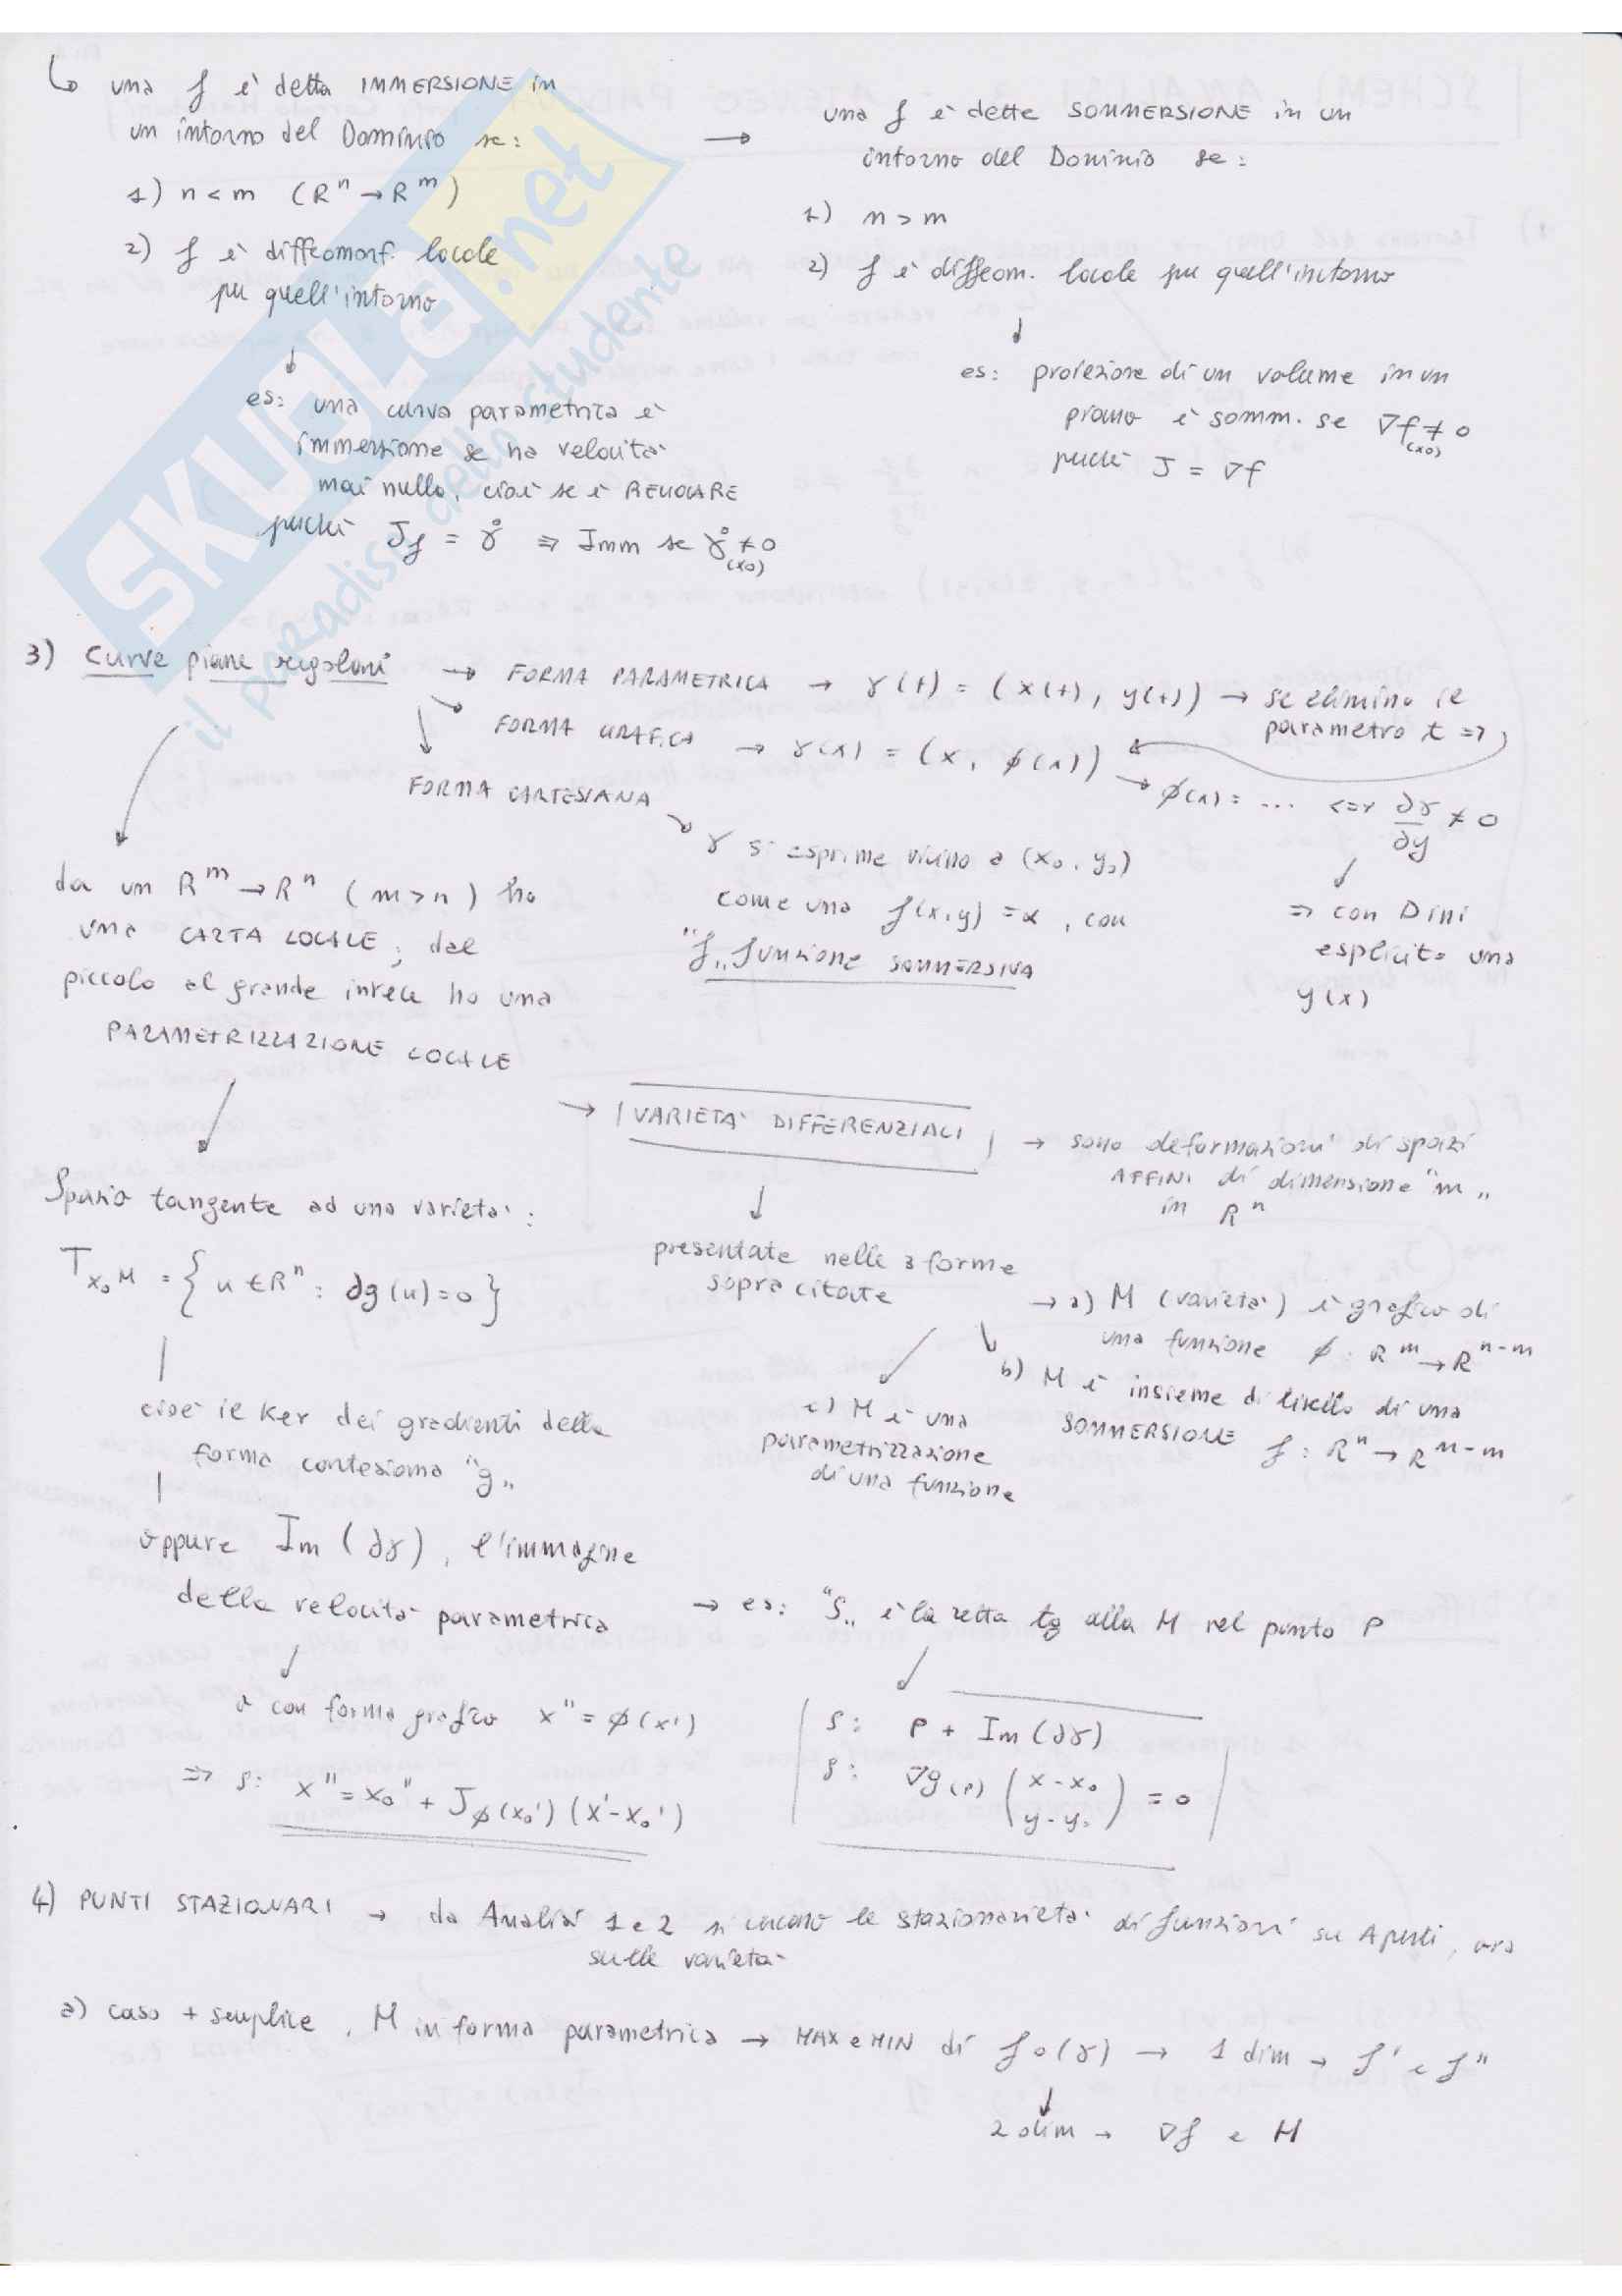 ↳ una f è detta IMMERSIONE in
un intorno del Dominio se:
1) n < m (R^n → R^m)
2) f è diffeomorf. locale
per quell'intorno
↓
es: una curva parametrica è
immersione se ha velocità
mai nulla, cioè se è REGOLARE
perché J_f = γ° ⇒ Imm se γ°(x0) ≠ 0
→ una f è dette SOMMERSIONE in un
intorno del Dominio se:
1) n > m
2) f è diffeom. locale per quell'intorno
↓
es: proiezione di un volume in un
piano è somm. se ∇f(x0) ≠ 0
perché J = ∇f
SKUOLA.net
il paradiso dello studente
3) Curve piane regolari → FORMA PARAMETRICA → γ(t) = (x(t), y(t)) → se elimino il
parametro t ⇒
FORMA GRAFICA → γ(x) = (x, φ(x))
→ φ(x) = ... <=> ∂γ/∂y ≠ 0
↓
⇒ con Dini
esplicito una
y(x)
FORMA CARTESIANA
↘ γ si esprime vicino a (x₀, y₀)
come una f(x,y) = α, con
"f" funzione SOMMERSIVA
da un R^m → R^n (m > n) ho
una CARTA LOCALE; dal
piccolo al grande invece ho una
PARAMETRIZZAZIONE LOCALE
→ | VARIETA' DIFFERENZIALI | → sono deformazioni di spazi
AFFINI di dimensione "m"
in R^n
↓
presentate nelle 3 forme
sopra citate
→ a) M (varietà) è grafico di
una funzione φ: R^m → R^{n-m}
b) M è insieme di livello di una
SOMMERSIONE f: R^n → R^{n-m}
c) M è una
parametrizzazione
di una funzione
Spazio tangente ad una varietà:
T_{x₀}M = { u ∈ R^n : ∂g(u) = 0 }
cioè il Ker dei gradienti della
forma cartesiana "g"
oppure Im (∂γ), l'immagine
della velocità parametrica
→ es: "S" è la retta tg alla M nel punto P
S: P + Im (∂γ)
S: ∇g(P) (x-x₀ y-y₀) = 0
o con forma grafico x'' = φ(x')
⇒ S: x'' = x₀'' + J_φ(x₀') (x'-x₀')
4) PUNTI STAZIONARI → da Analisi 1 e 2 si cercano le stazionarietà di funzioni su Aperti, ora
sulle varietà
a) caso + semplice, M in forma parametrica → MAX e MIN di f∘(γ) → 1 dim → f' e f''
↓
2 dim → ∇f e H